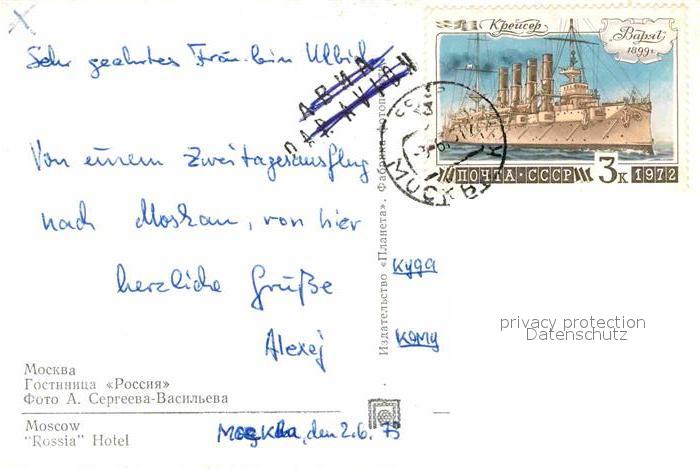 Sehr geehrtes Fräulein Ulbrich
АВИА
PAR AVION
Von einem Zweitagesausflug
nach Moskau, von hier
herzliche Grüße
Alexej
Москва
Гостиница «Россия»
Фото А. Сергеева-Васильева
Moscow
"Rossia" Hotel
Москва, den 2.6. 73
Издательство «Планета». Фабрика фотопе
Крейсер
Варяг
1899г.
ПОЧТА·СССР
3к 1972
куда
кому
privacy protection
Datenschutz